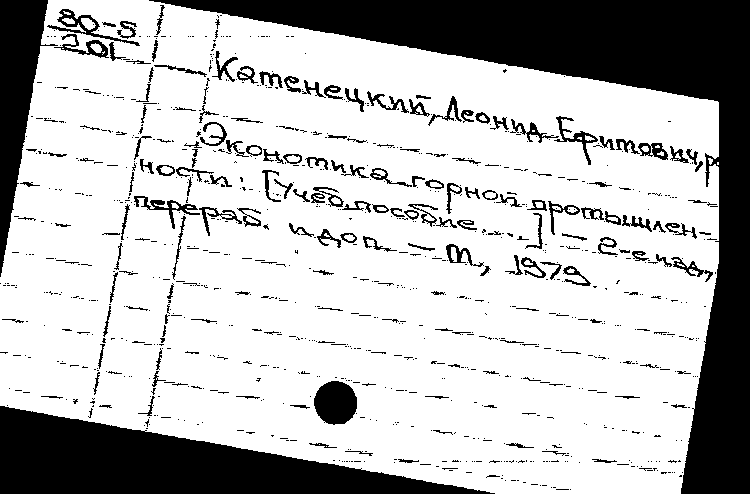 80-5
201
Катенецкий, Леонид Ефимович, ре
Экономика горной промышлен-
ности: [Учеб. пособие....] - 2-е изд.,
перераб. и доп. - М, 1979